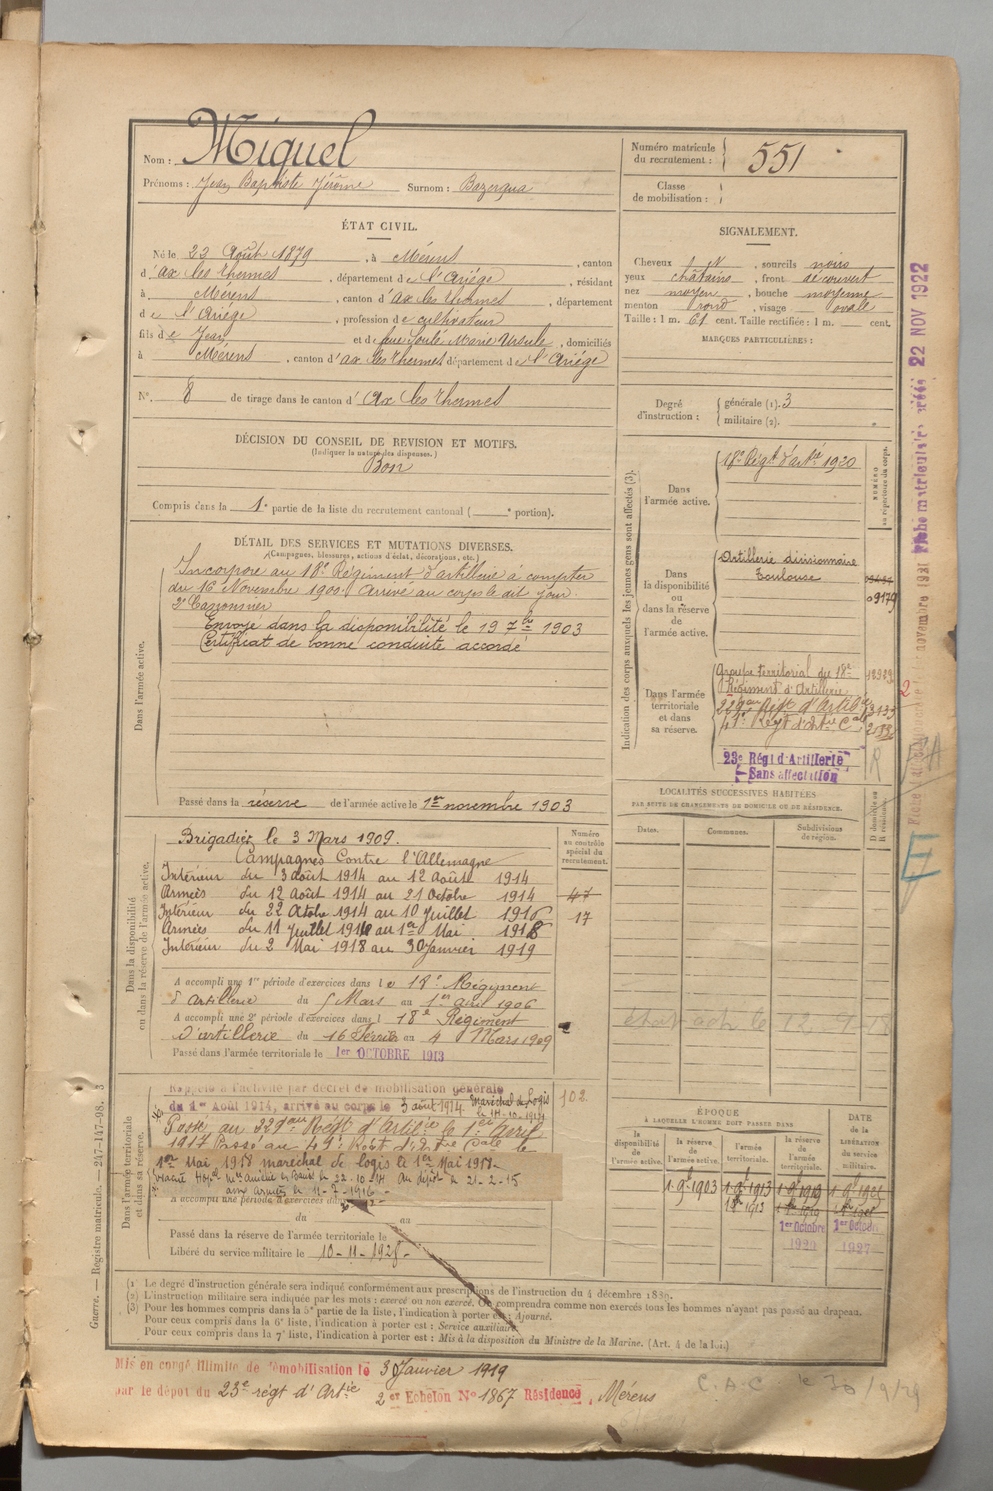 Nom : Miquel
Prénoms : Jean Baptiste Jérôme Surnom : Bazerqua
Numéro matricule du recrutement : 551
Classe de mobilisation :
ÉTAT CIVIL.
Né le 23 Août 1879, à Mérens, canton
d'ax les thermes, département de l'Ariége, résidant
à Mérens, canton d'ax les thermes, département
de l'Ariége, profession de cultivateur
fils de Jean et de feue Soulé Marie Ursule, domiciliés
à Mérens, canton d'ax les thermes département de l'Ariége
N° 8 de tirage dans le canton d'Ax les thermes
DÉCISION DU CONSEIL DE REVISION ET MOTIFS.
(Indiquer la nature des dispenses.)
Bon
Compris dans la 1e partie de la liste du recrutement cantonal ( e portion).
SIGNALEMENT.
Cheveux N, sourcils noirs
yeux châtains, front découvert
nez moyen, bouche moyenne
menton rond, visage ovale
Taille : 1 m. 61 cent. Taille rectifiée : 1 m. cent.
MARQUES PARTICULIÈRES :
Degré d'instruction : générale (1). 3
militaire (2).
DÉTAIL DES SERVICES ET MUTATIONS DIVERSES.
(Campagnes, blessures, actions d'éclat, décorations, etc.)
Dans l'armée active.
Incorporé au 18e Régiment d'artillerie à compter
du 16 Novembre 1900. Arrivé au corps le dit jour.
2e Canonnier
Envoyé dans la disponibilité le 19 7bre 1903
Certificat de bonne conduite accordé
Passé dans la réserve de l'armée active le 1er novembre 1903
Indication des corps auxquels les jeunes gens sont affectés (3).
NUMÉRO au répertoire du corps.
Dans l'armée active.
18e Régt d'artie 1920
Dans la disponibilité ou dans la réserve de l'armée active.
Artillerie divisionnaire
Toulouse
09179
Dans l'armée territoriale et dans sa réserve.
Groupe territorial du 18e
Régiment d'Artillerie
23e Régt d'Artillerie
Sans affectation
R
LOCALITÉS SUCCESSIVES HABITÉES
PAR SUITE DE CHANGEMENTS DE DOMICILE OU DE RÉSIDENCE.
Dates.
Communes.
Subdivisions de région.
D domicile ou R résidence.
Dans la disponibilité ou dans la réserve de l'armée active.
Numéro au contrôle spécial du recrutement.
Brigadier le 3 Mars 1909.
Campagnes Contre l'Allemagne
Intérieur du 3 août 1914 au 12 Août 1914
Armées du 12 Août 1914 au 21 Octobre 1914 47
Intérieur du 22 Octobre 1914 au 10 Juillet 1916 17
Armées du 11 Juillet 1916 au 1er Mai 1918
Intérieur du 2 Mai 1918 au 30 Janvier 1919
A accompli une 1re période d'exercices dans le 18e Régiment
d'artillerie du 5 Mars au 1er avril 1906
A accompli une 2e période d'exercices dans l 18e Régiment
D'artillerie du 16 Février au 4 Mars 1909
Passé dans l'armée territoriale le 1er OCTOBRE 1913
Dans l'armée territoriale et dans sa réserve.
Rappelé à l'activité par décret de mobilisation générale
du 1er Août 1914, arrivé au corps le 3 août 1914 Maréchal de Logis
102
Passé au 229eme Régt d'Artie le 1er Avril
1917 Passé au
1er Mai 1918 maréchal de logis le 1er Mai 1918
22-10-14 au dépôt le 21-2-15
aux armées le 11-7-1916
A accompli une période d'exercices
du au
Passé dans la réserve de l'armée territoriale le
Libéré du service militaire le 10-11-1928
ÉPOQUE
À LAQUELLE L'HOMME DOIT PASSER DANS
DATE DE LA LIBÉRATION DU service militaire.
la disponibilité de l'armée active.
la réserve de l'armée active.
l'armée territoriale.
la réserve de l'armée territoriale.
1-9bre 1903 1-9bre 1913 1-9bre 1919 1-9bre 1925
1er Octobre 1er Octobre
1920 1927
(1) Le degré d'instruction générale sera indiqué conformément aux prescriptions de l'instruction du 4 décembre 1889.
(2) L'instruction militaire sera indiquée par les mots : exercé ou non exercé. On comprendra comme non exercés tous les hommes n'ayant pas passé au drapeau.
(3) Pour les hommes compris dans la 5e partie de la liste, l'indication à porter est : Ajourné.
Pour ceux compris dans la 6e liste, l'indication à porter est : Service auxiliaire.
Pour ceux compris dans la 7e liste, l'indication à porter est : Mis à la disposition du Ministre de la Marine. (Art. 4 de la loi.)
Mis en congé illimité de démobilisation le 30 Janvier 1919
par le dépôt du 23e régt d'Artie 2er Echelon N° 1867 Résidence, Mérens
C.A.C. le 30/9/29
Guerre. — Registre matricule. — 247-147-98.
22 NOV 1922